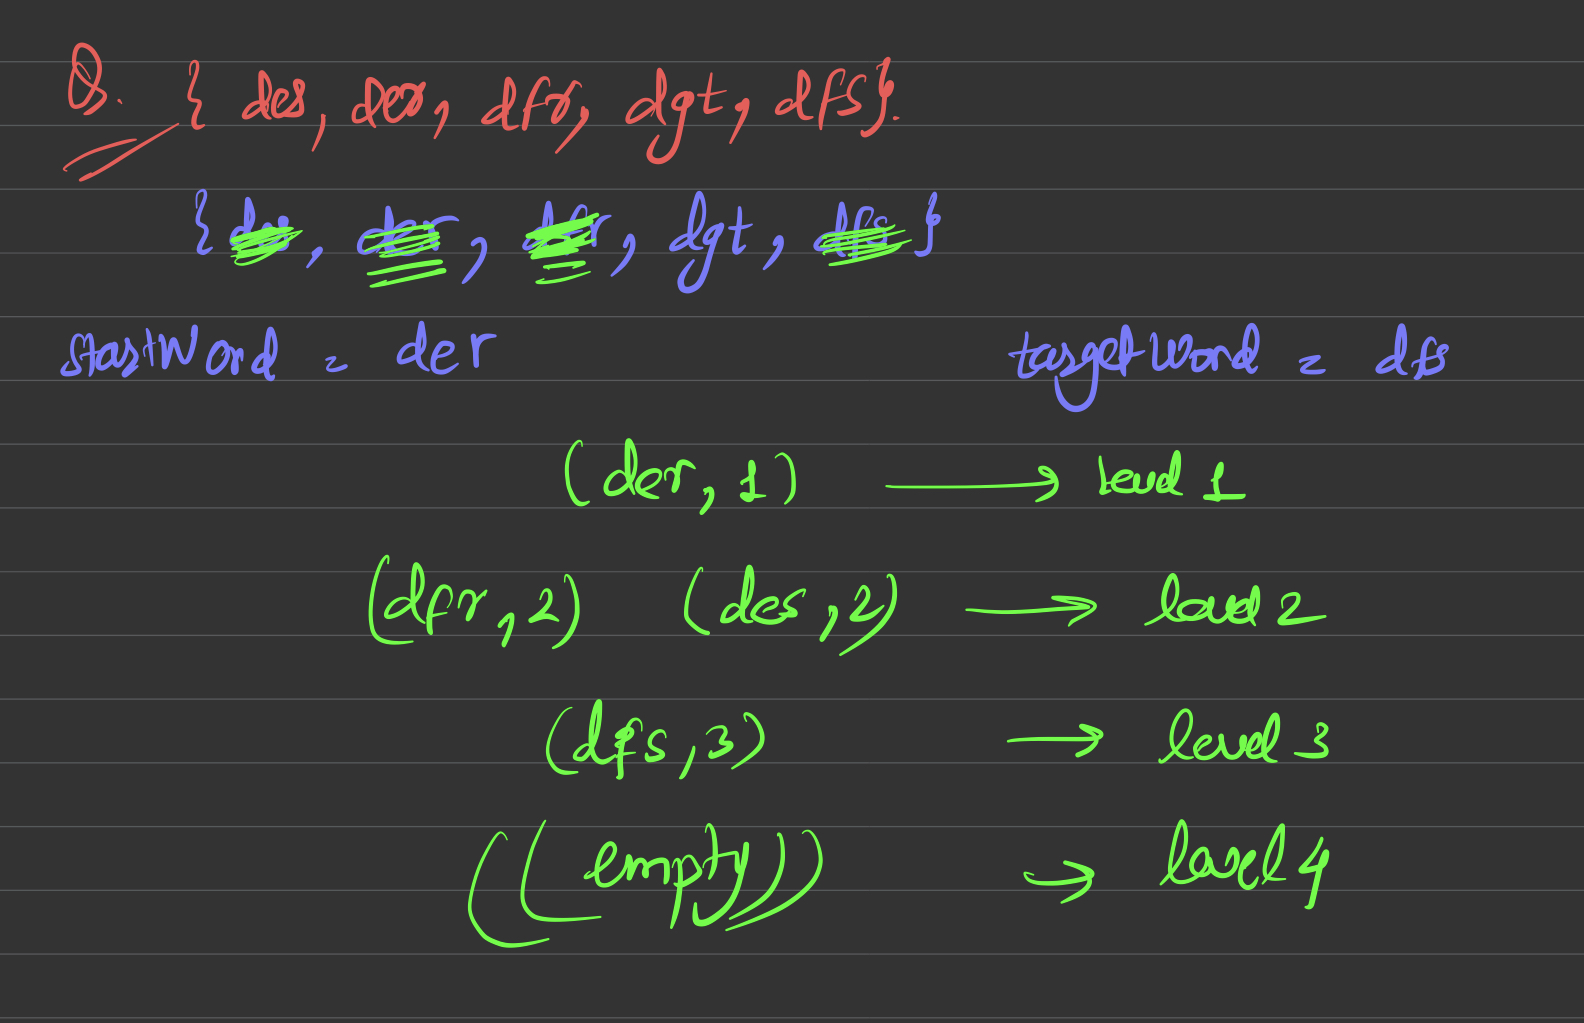 Q. { des, der, dfr, dgt, dfs}.
{ des, der, dfr, dgt, dfs }
startWord = der targetWord = dfs
(der, 1) → level 1
(dfr, 2) (des, 2) → level 2
(dfs, 3) → level 3
((empty)) → level 4